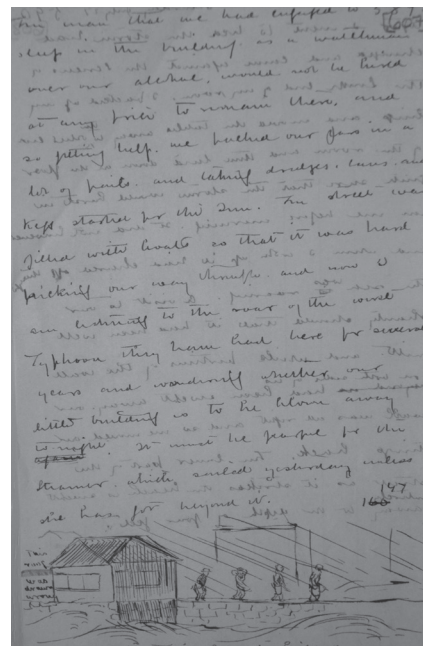 man that we had engaged to
sleep in the building as a watchman
over our alcohol, would not be hired
at any price to remain there, and
so getting help we packed our jars in a
lot of pails and taking dredges, laws and
started for the Inn. The street was
filled with boats so that it was hard
picking our way through and now I
am listening to the roar of the worst
Typhoon they have had here for several
years and wondering whether our
little building is to be blown away
to-night. It must be fearful for the
steamer which sailed yesterday unless
she has got beyond it.
147
160
This
wing
was
drawn
wrong